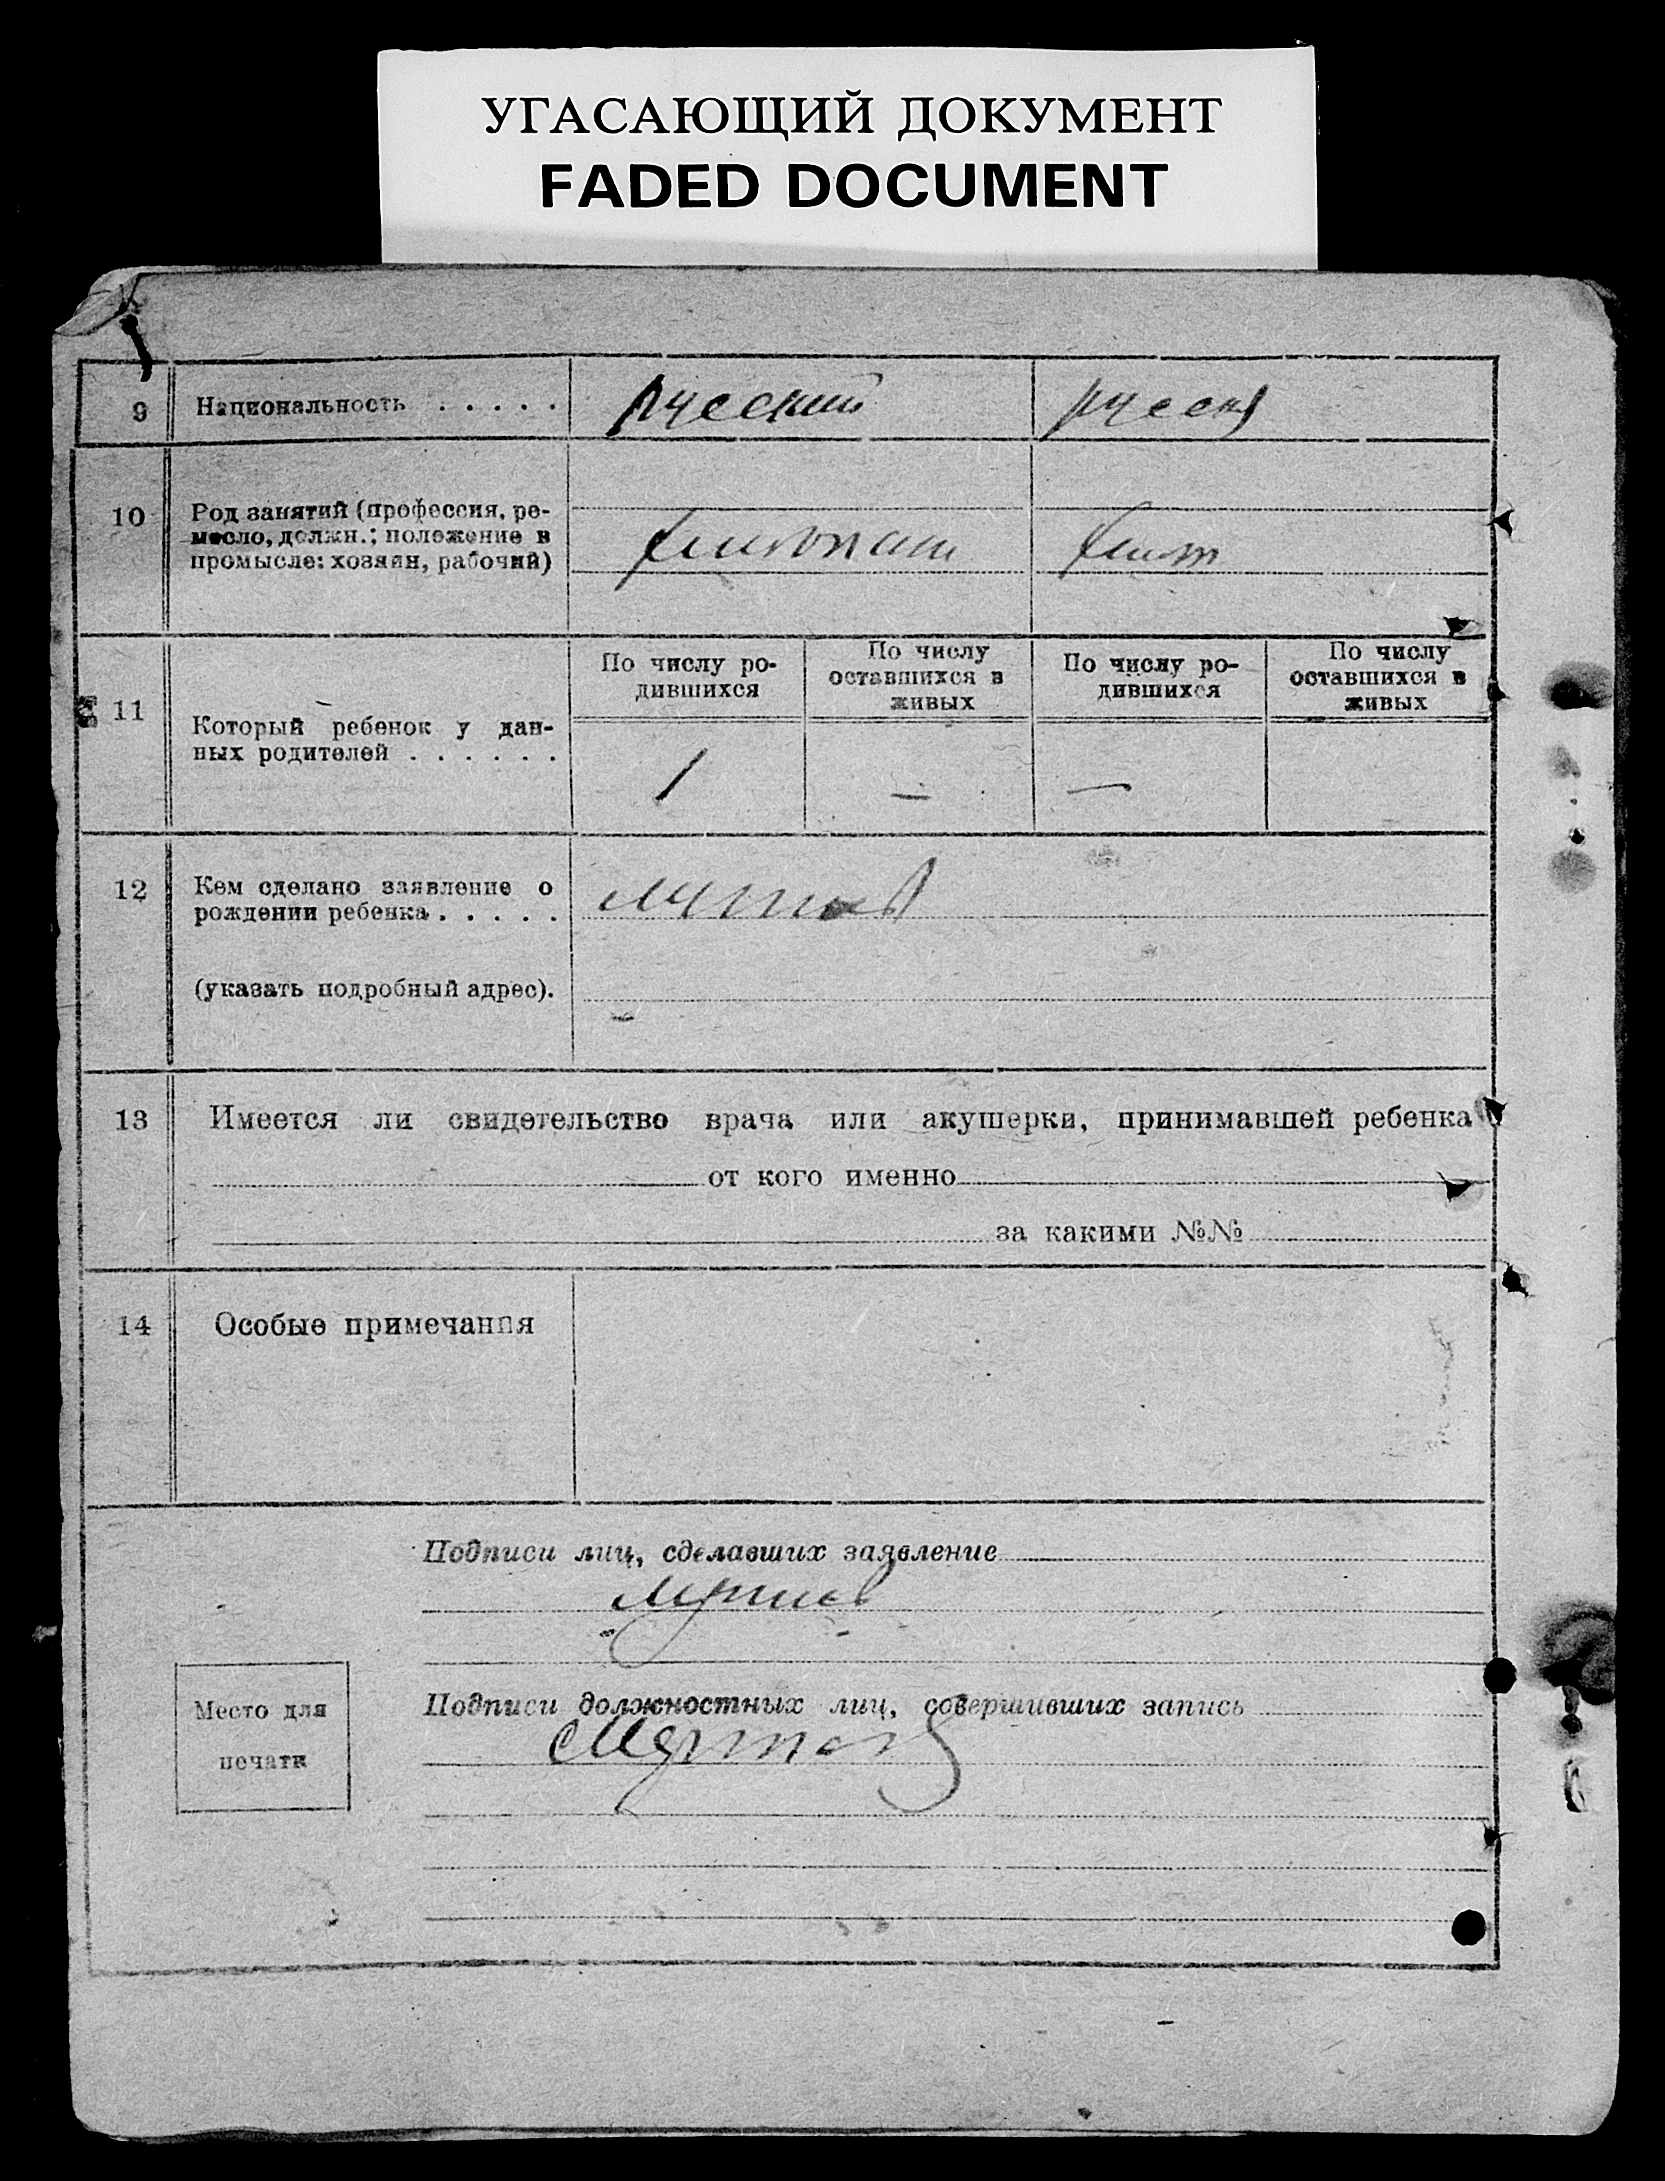 УГАСАЮЩИЙ ДОКУМЕНТ
FADED DOCUMENT
9 Национальность . . . . . русский русская
10 Род занятий (профессия, ре-
месло, должн.; положение в
промысле: хозяин, рабочий)
По числу ро-
дившихся
По числу
оставшихся в
живых
По числу ро-
дившихся
По числу
оставшихся в
живых
11 Который ребенок у дан-
ных родителей . . . . . . 1 — —
12 Кем сделано заявление о
рождении ребенка . . . . .
(указать подробный адрес).
13 Имеется ли свидетельство врача или акушерки, принимавшей ребенка
от кого именно
за какими №№
14 Особые примечания
Подписи лиц, сделавших заявление
Место для
печати
Подписи должностных лиц, совершивших запись